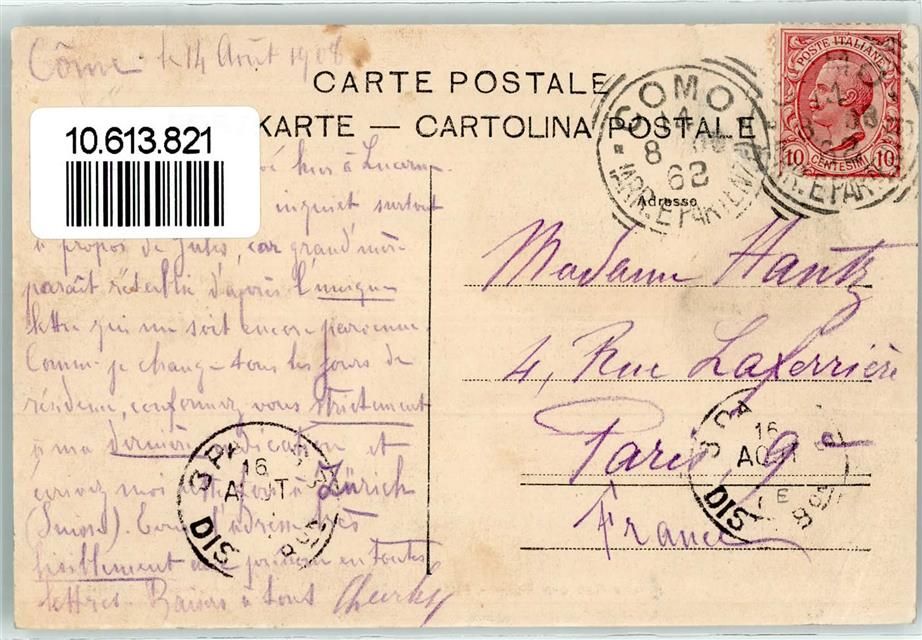 Côme le 14 Août 1908
CARTE POSTALE
KARTE — CARTOLINA POSTALE
10.613.821
hier à Lucerne
inquiet surtout
à propos de Jules, car grand'mère
paraît rétablie d'après l'unique
lettre qui me soit encore parvenue.
Comme je change tous les jours de
résidence, conformez vous strictement
à ma dernière indication et
à Zürich
(Suisse). l'adresse très
lisiblement prénom en toutes
lettres. Baisers à tous Charley
POSTE ITALIANE
10 CENTESIMI 10
COMO
14
8 08
62
ARR. E PARTENZA
Adresse
Madame Hantz
4, Rue Laferrière
Paris, 9e
France
16
AOUT
DIS
16
AOUT
DIST